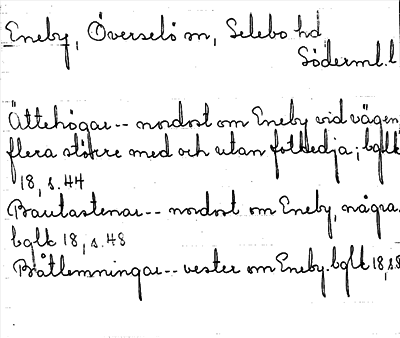 Eneby, Överselö sn, Selebo hd
Söderml. l
Ättehögar -- nordost om Eneby vid vägen,
flera större med och utan fotkedja; bglk
18, s. 44
Bautastenar -- nordost om Eneby, några.
bglk 18, s. 48
Båtlemningar -- vester om Eneby. bglk 18, s 8